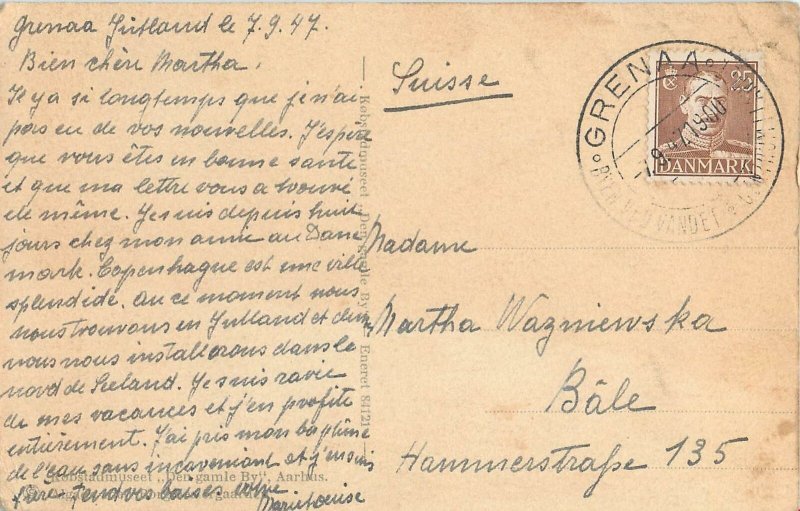 Grenaa Jütland le 7.9.47.
Bien chère Martha.
Il y a si longtemps que je n'ai
pas eu de vos nouvelles. J'espère
que vous êtes en bonne santé
et que ma lettre vous a trouvé
de même. Je suis depuis huit
jours chez mon amie au Dane
mark. Copenhague est une ville
splendide. Au ce moment nous
nous trouvons en Jutland et
nous nous installerons dans le
nord de Seeland. Je suis ravie
de mes vacances et j'en profite
entièrement. J'ai pris mon baptême
de l'eau sans inconvenient et j'en suis
fière. Tendres baises votre
Marielouise
Købstadmuseet „Den gamle By", Aarhus.
Købstadmuseet „Den gamle By" Eneret 84121
Suisse
Madame
Martha Wazniewska
Bâle
Hammerstraße 135
GRENAA
7.9.47.19-00
VANDET
25
DANMARK